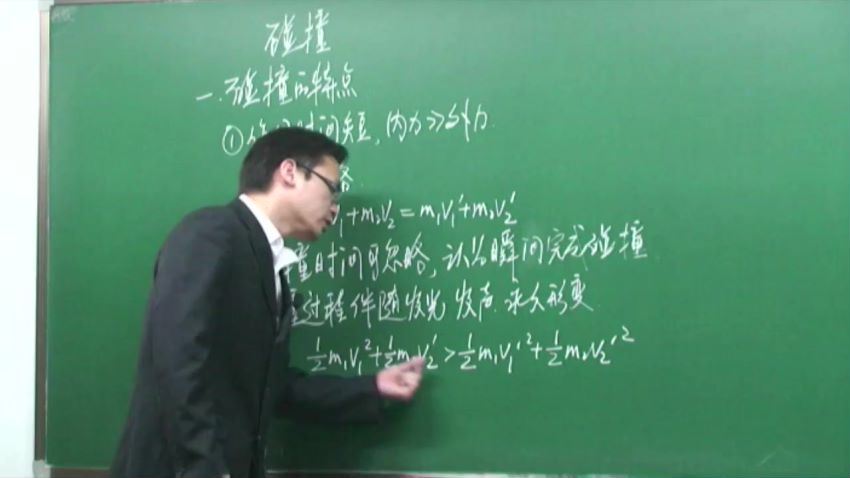 碰撞
一.碰撞的特点
①作用时间短,内力>>外力.
略.
v₁+m₂v₂=m₁v₁'+m₂v₂'
撞时间可忽略,认为瞬间完成碰撞.
过程伴随发光 发声 永久形变
½m₁v₁²+½m₂v₂'>½m₁v₁'²+½m₂v₂'²